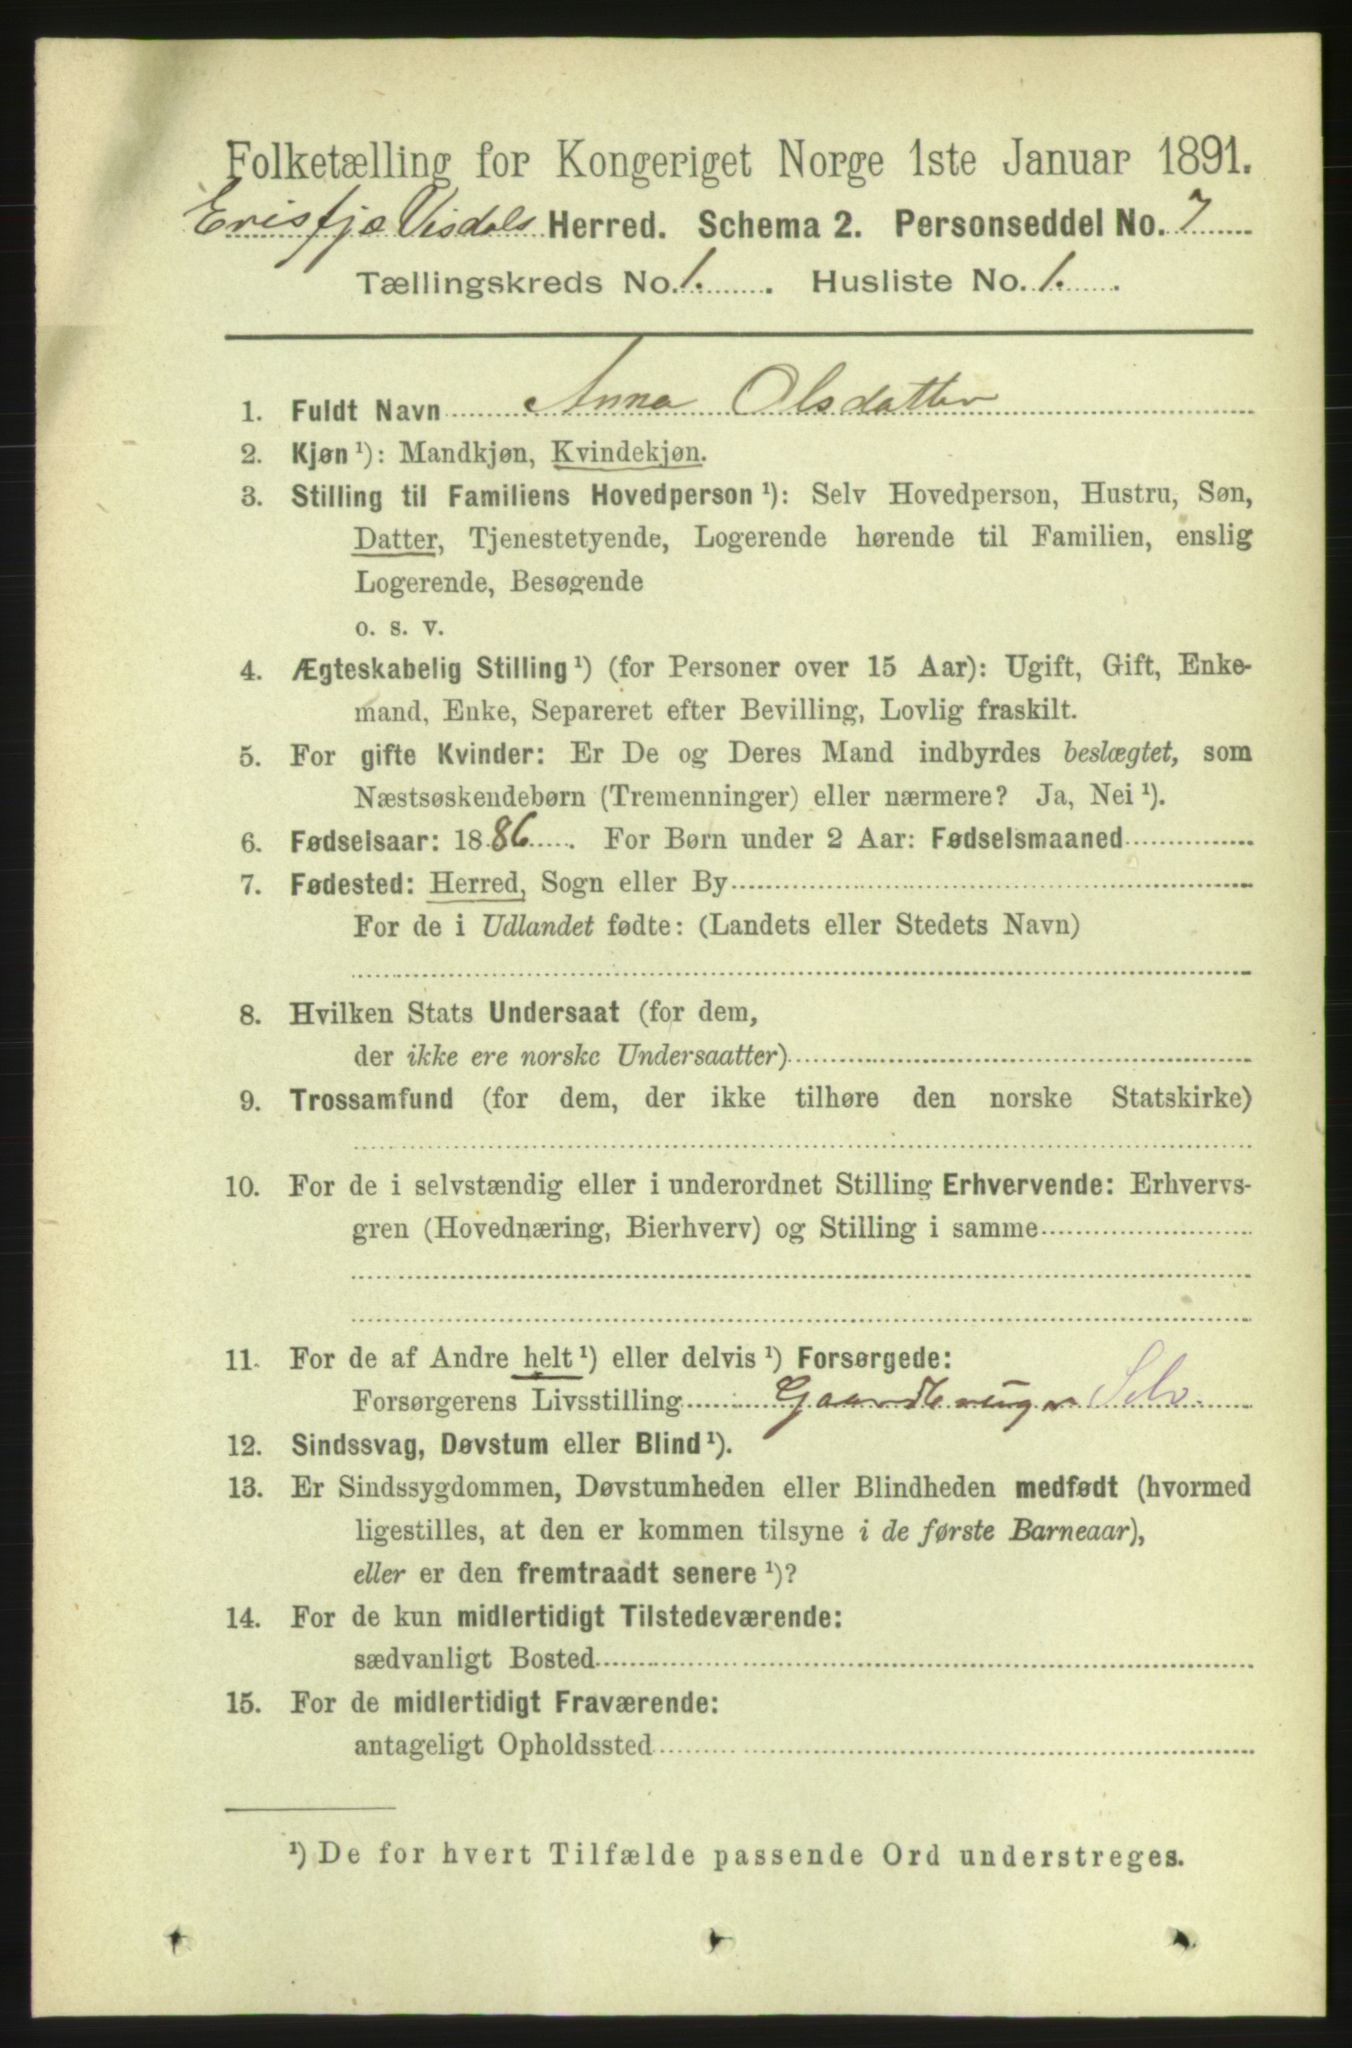 Folketælling for Kongeriget Norge 1ste Januar 1891.
Erisfjo Visdals Herred. Schema 2. Personseddel No. 7
Tællingskreds No. 1. Husliste No. 1.
1. Fuldt Navn Anna Olsdatter
2. Kjøn ¹): Mandkjøn, Kvindekjøn.
3. Stilling til Familiens Hovedperson ¹): Selv Hovedperson, Hustru, Søn,
Datter, Tjenestetyende, Logerende hørende til Familien, enslig
Logerende, Besøgende
o. s. v.
4. Ægteskabelig Stilling ¹) (for Personer over 15 Aar): Ugift, Gift, Enke-
mand, Enke, Separeret efter Bevilling, Lovlig fraskilt.
5. For gifte Kvinder: Er De og Deres Mand indbyrdes beslægtet, som
Næstsøskendebørn (Tremenninger) eller nærmere? Ja, Nei ¹).
6. Fødselsaar: 1886. For Børn under 2 Aar: Fødselsmaaned
7. Fødested: Herred, Sogn eller By
For de i Udlandet fødte: (Landets eller Stedets Navn)
8. Hvilken Stats Undersaat (for dem,
der ikke ere norske Undersaatter)
9. Trossamfund (for dem, der ikke tilhøre den norske Statskirke)
10. For de i selvstændig eller i underordnet Stilling Erhvervende: Erhvervs-
gren (Hovednæring, Bierhverv) og Stilling i samme
11. For de af Andre helt ¹) eller delvis ¹) Forsørgede:
Forsørgerens Livsstilling Gaardbruger Selv.
12. Sindssvag, Døvstum eller Blind ¹).
13. Er Sindssygdommen, Døvstumheden eller Blindheden medfødt (hvormed
ligestilles, at den er kommen tilsyne i de første Barneaar),
eller er den fremtraadt senere ¹)?
14. For de kun midlertidigt Tilstedeværende:
sædvanligt Bosted
15. For de midlertidigt Fraværende:
antageligt Opholdssted
¹) De for hvert Tilfælde passende Ord understreges.